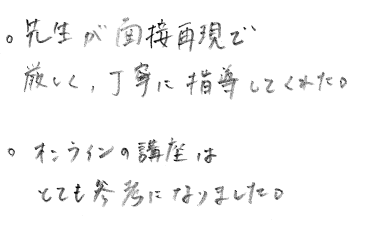 。先生が面接再現で
厳しく、丁寧に指導してくれた。
。オンラインの講座は
とても参考になりました。